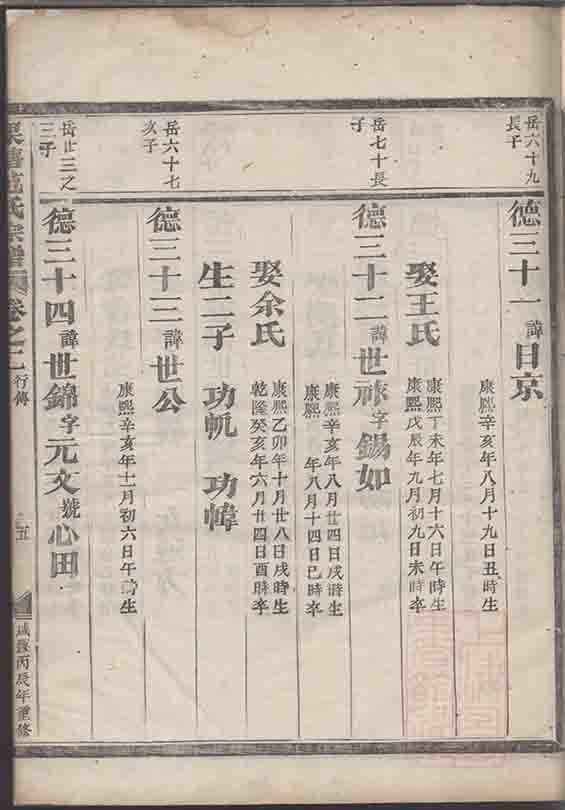 岳六十九
長子
德三十一 諱日京
康熙辛亥年八月十九日丑時生
娶王氏
康熙丁未年七月十六日午時生
康熙戊辰年九月初九日未時卒
岳七十長
子
德三十二 諱世祿字錫如
康熙辛亥年八月廿四日戌時生
康熙 年八月十四日巳時卒
娶余氏
康熙乙卯年十月廿八日戌時生
乾隆癸亥年六月廿四日酉時卒
生二子 功帆 功幃
岳六十七
次子
德三十三 諱世公
康熙辛亥年十一月初六日午時生
岳廿三之
三子
德三十四 諱世錦字元文號心田
氏宗譜 卷之二 行傳
五
咸豐丙辰年重修